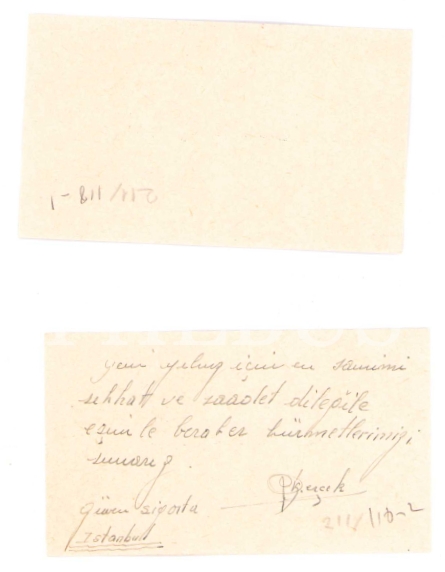 yeni yılınız için en samimi
sıhhat ve saadet dileğile
eşimle beraber hürmetlerimizi
sunarız.
Güven sigorta
Istanbul